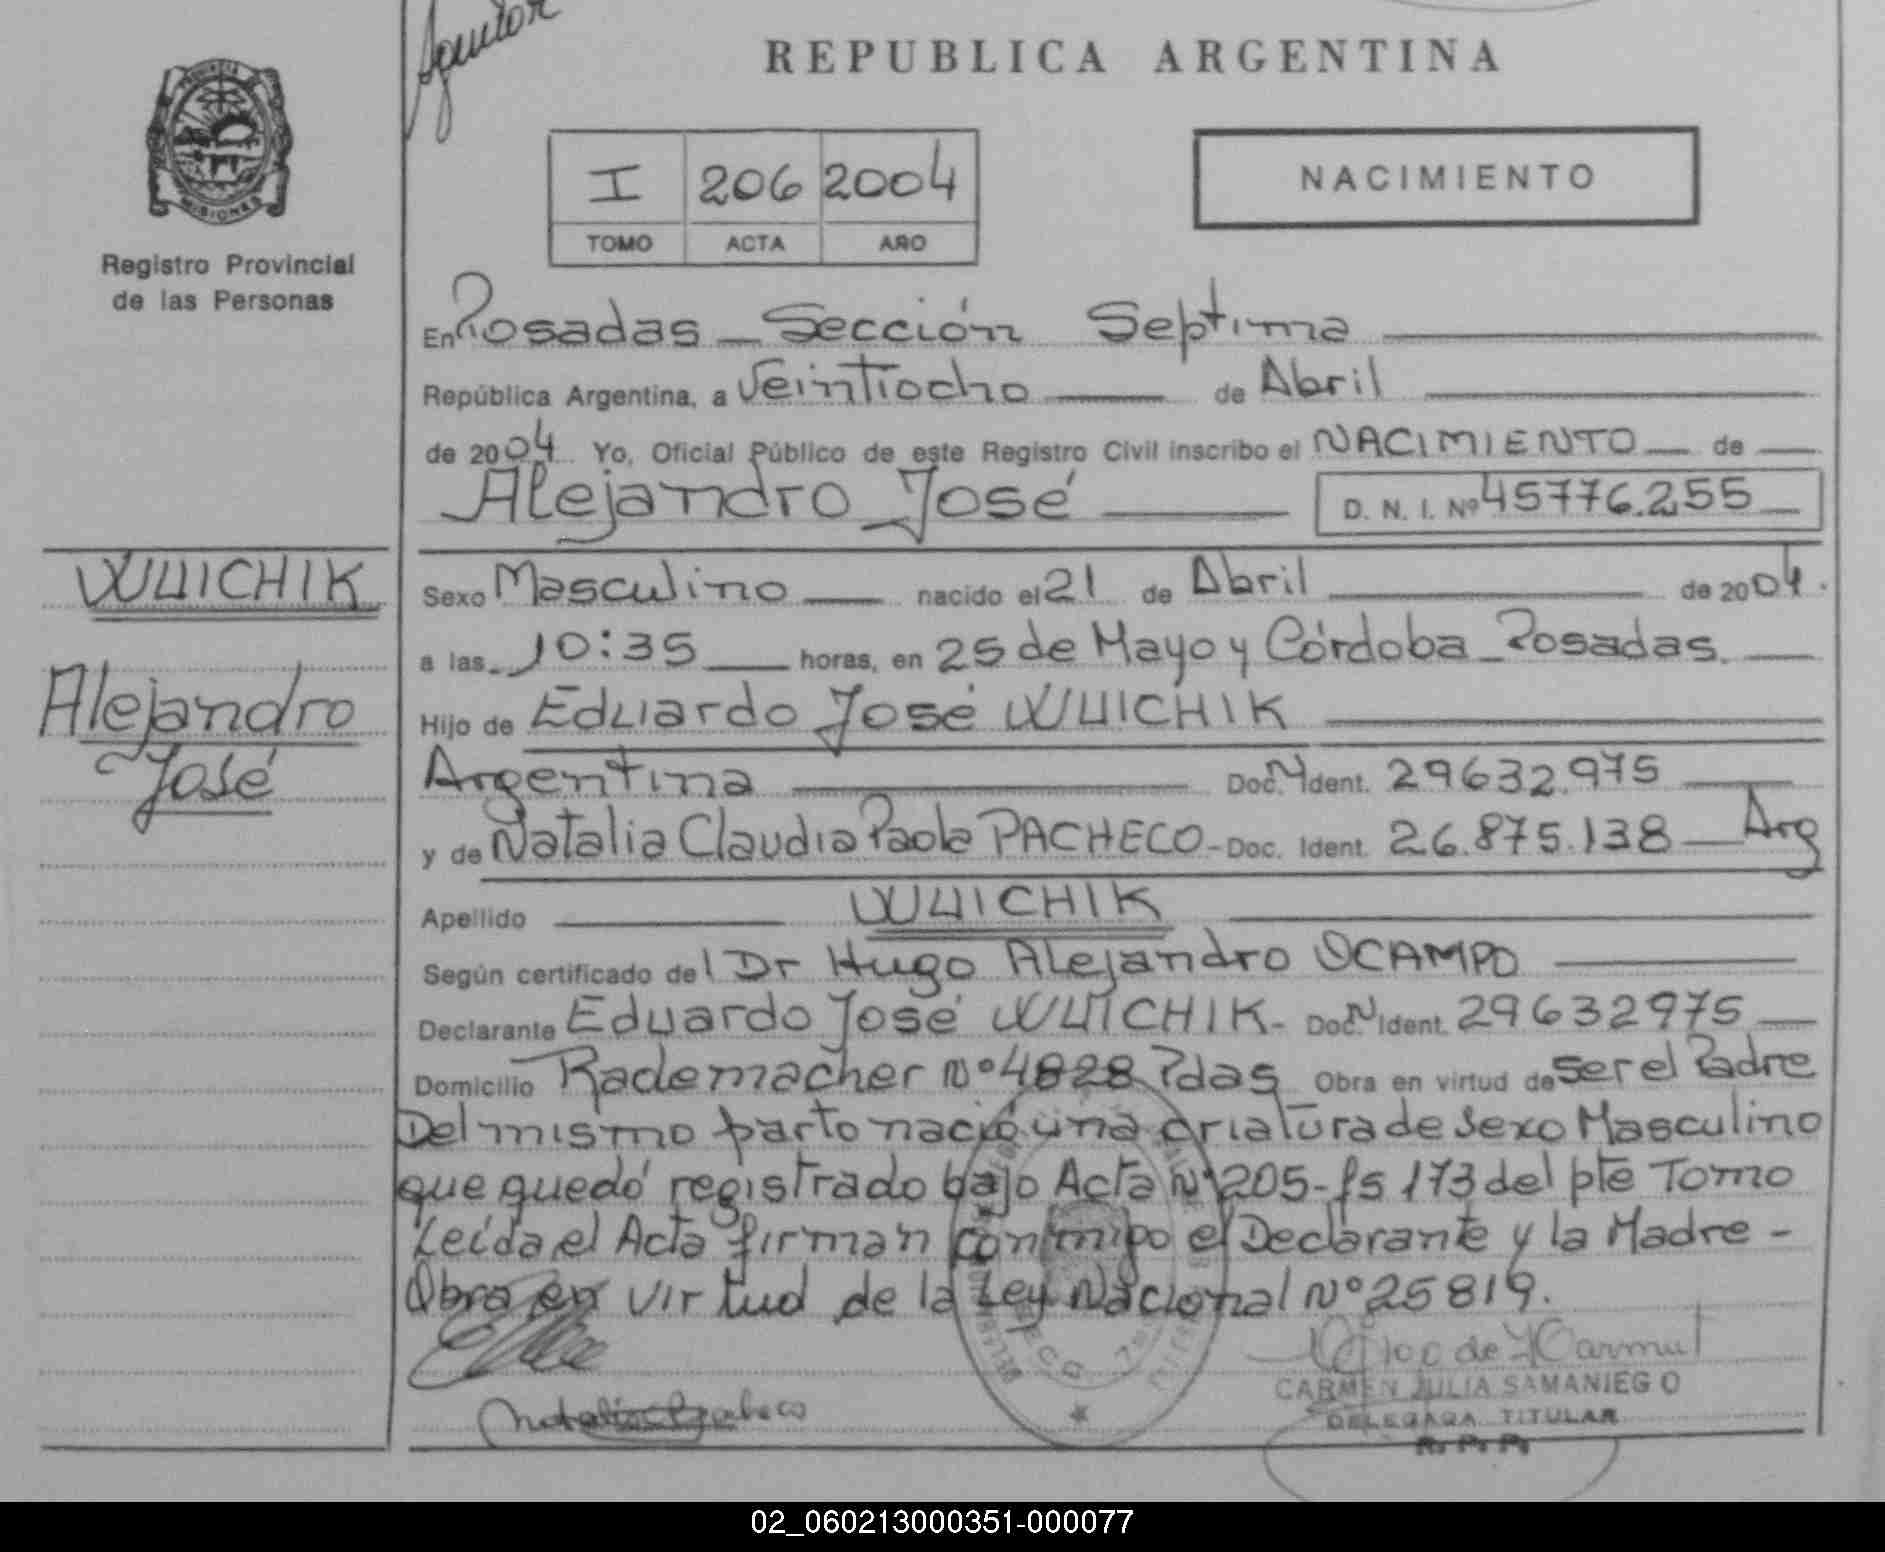 REPUBLICA ARGENTINA
PROVINCIA DE
MISIONES
Registro Provincial
de las Personas
I 206 2004
TOMO ACTA AÑO
NACIMIENTO
En Posadas _ Sección Septima
República Argentina, a Veintiocho de Abril
de 2004 Yo, Oficial Público de este Registro Civil inscribo el NACIMIENTO de
Alejandro José D. N. I. Nº 45776.255
WUICHIK
Alejandro
José
Sexo Masculino nacido el 21 de Abril de 2004.
a las 10:35 horas, en 25 de Mayo y Córdoba _ Posadas.
Hijo de Eduardo José WUICHIK
Argentina Doc. N Ident. 29632.975
y de Natalia Claudia Paola PACHECO - Doc. Ident. 26.875.138 Arg
Apellido WUICHIK
Según certificado del Dr Hugo Alejandro OCAMPO
Declarante Eduardo José WUICHIK - Doc. N Ident. 29632975
Domicilio Rademacher Nº 4828 Pdas Obra en virtud de Ser el Padre
Del mismo parto nació una criatura de sexo Masculino
que quedó registrado bajo Acta Nº 205 - fs 173 del pte Tomo
Leída el Acta firman conmigo el Declarante y la Madre -
Obra en virtud de la Ley Nacional Nº 25819.
Natalia Pacheco
CARMEN JULIA SAMANIEGO
DELEGADA TITULAR
R. P. P.
02_060213000351-000077